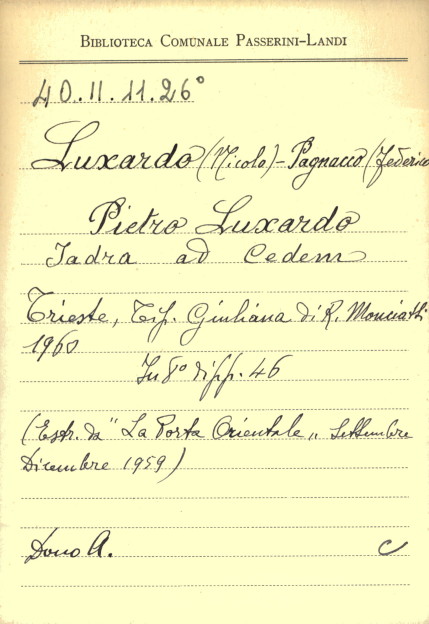 BIBLIOTECA COMUNALE PASSERINI-LANDI
40.II.11.26°
Luxardo (Nicolo) - Pagnacco (Federico
Pietro Luxardo
Iadra ad Cedem
Trieste, Tip. Giuliana di R. Monciatti
1960
In 8° di pp. 46
(Estr. da "La Porta Orientale„ Settembre
Dicembre 1959)
Dono A. C